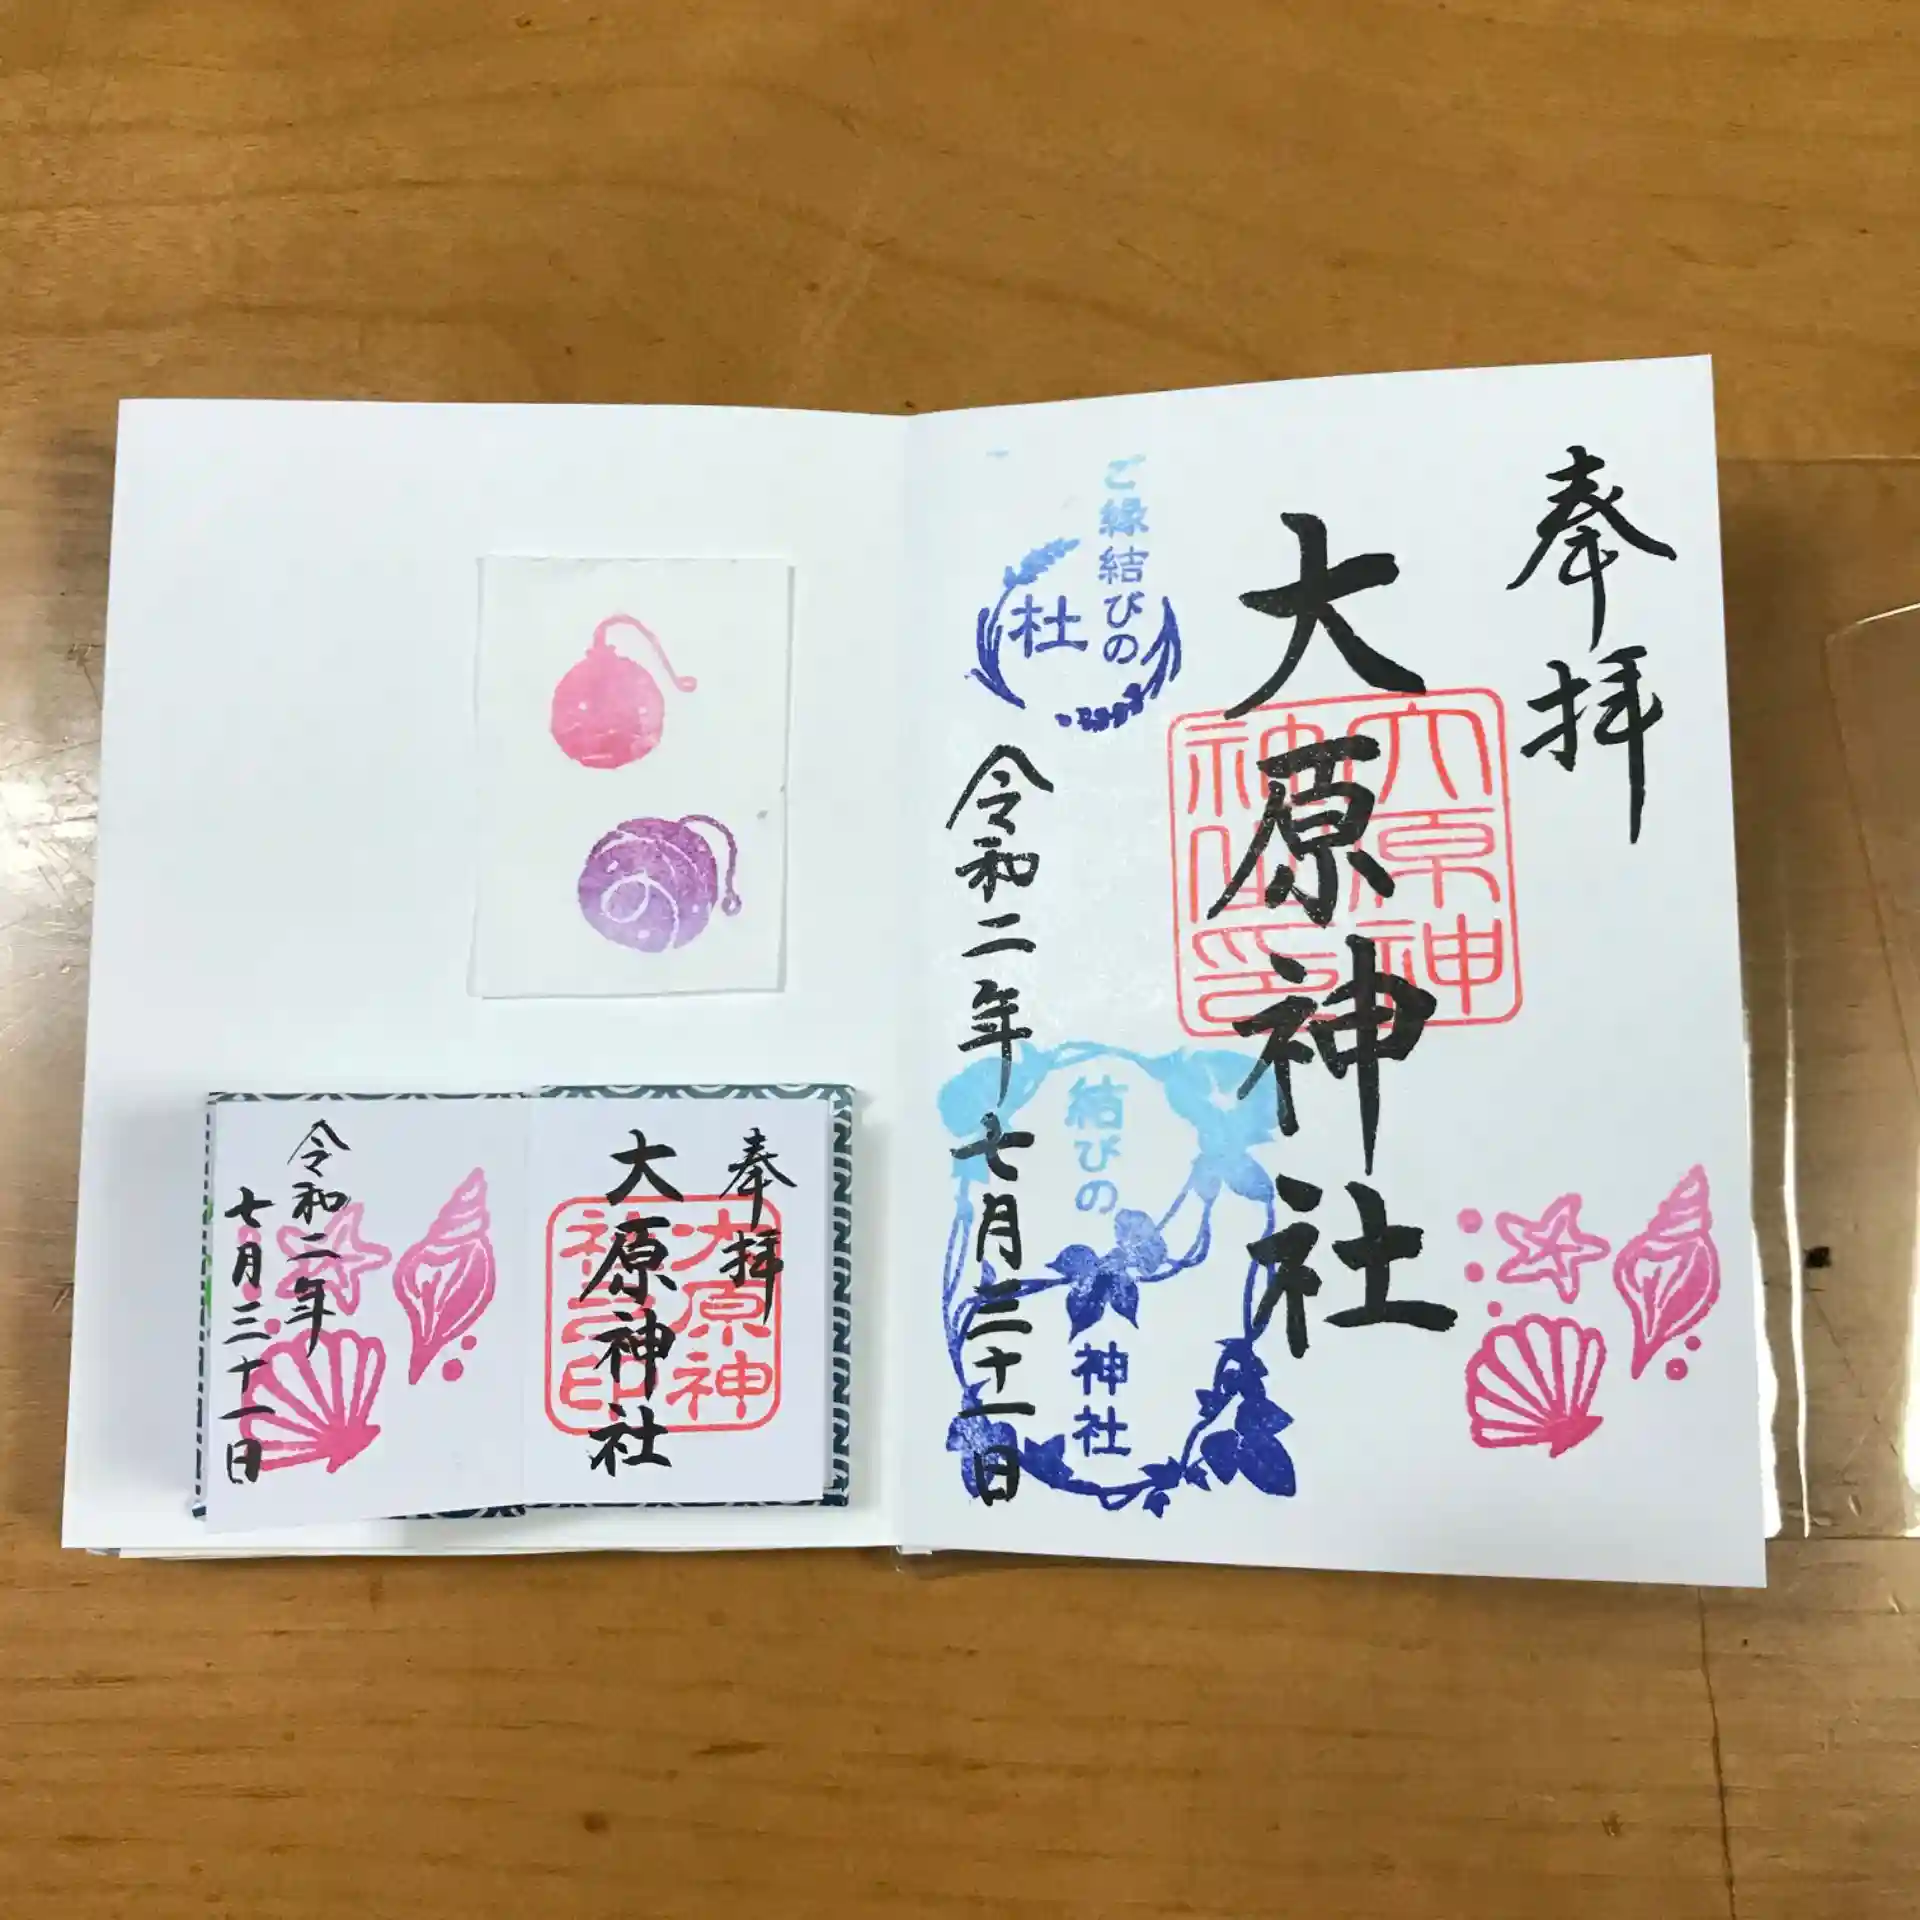 奉拝
大原神社
大原神
神社印
ご縁結びの
杜
令和二年七月三十一日
結びの
神社
奉拝
大原神社
大原神
令和二年
七月三十一日